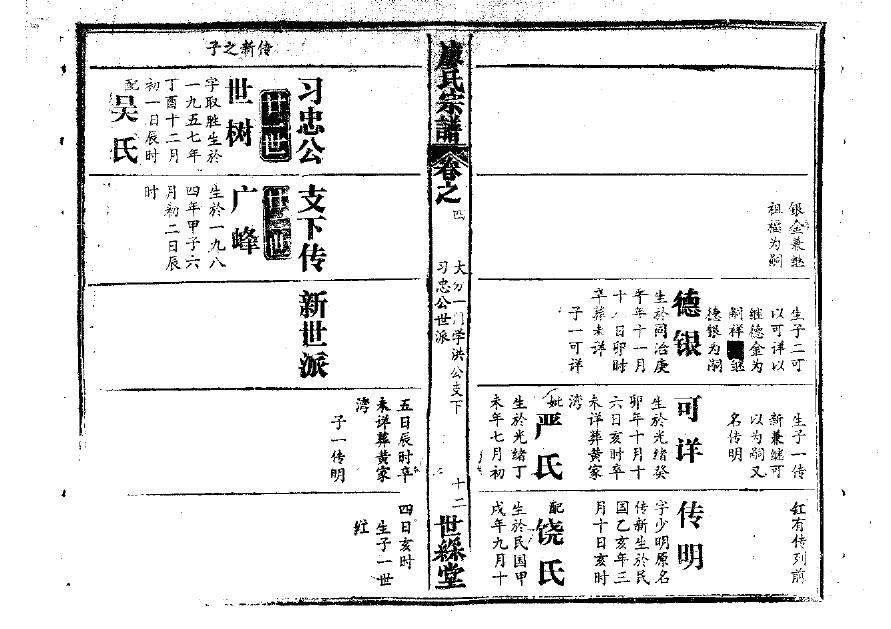 银金兼继
祖樞为嗣
生子二可
以可详以
继德金为
嗣祥继
德银为嗣
德银
生於同治庚
午年十一月
十八日卯时
卒葬未详
子一可详
生子一传
新兼继可
以为嗣又
名传明
可详
生於光绪癸
卯年十月十
六日亥时卒
未详葬黄家
湾
妣
严氏
生於光绪丁
未年七月初
红有传列前
传明
字少明原名
传新生於民
国乙亥年三
月十日亥时
配
饶氏
生於民国甲
戌年九月十
廖氏宗譜
卷之四
大分一门学洪公支下
习忠公世派
十二
世綵堂
传新之子
习忠公
支下传
新世派
世树
字取胜生於
一九五七年
丁酉十二月
初一日辰时
配
吴氏
广峰
生於一九八
四年甲子六
月初二日辰
时
五日辰时卒
未详葬黄家
湾
子一传明
四日亥时
生子一世
红